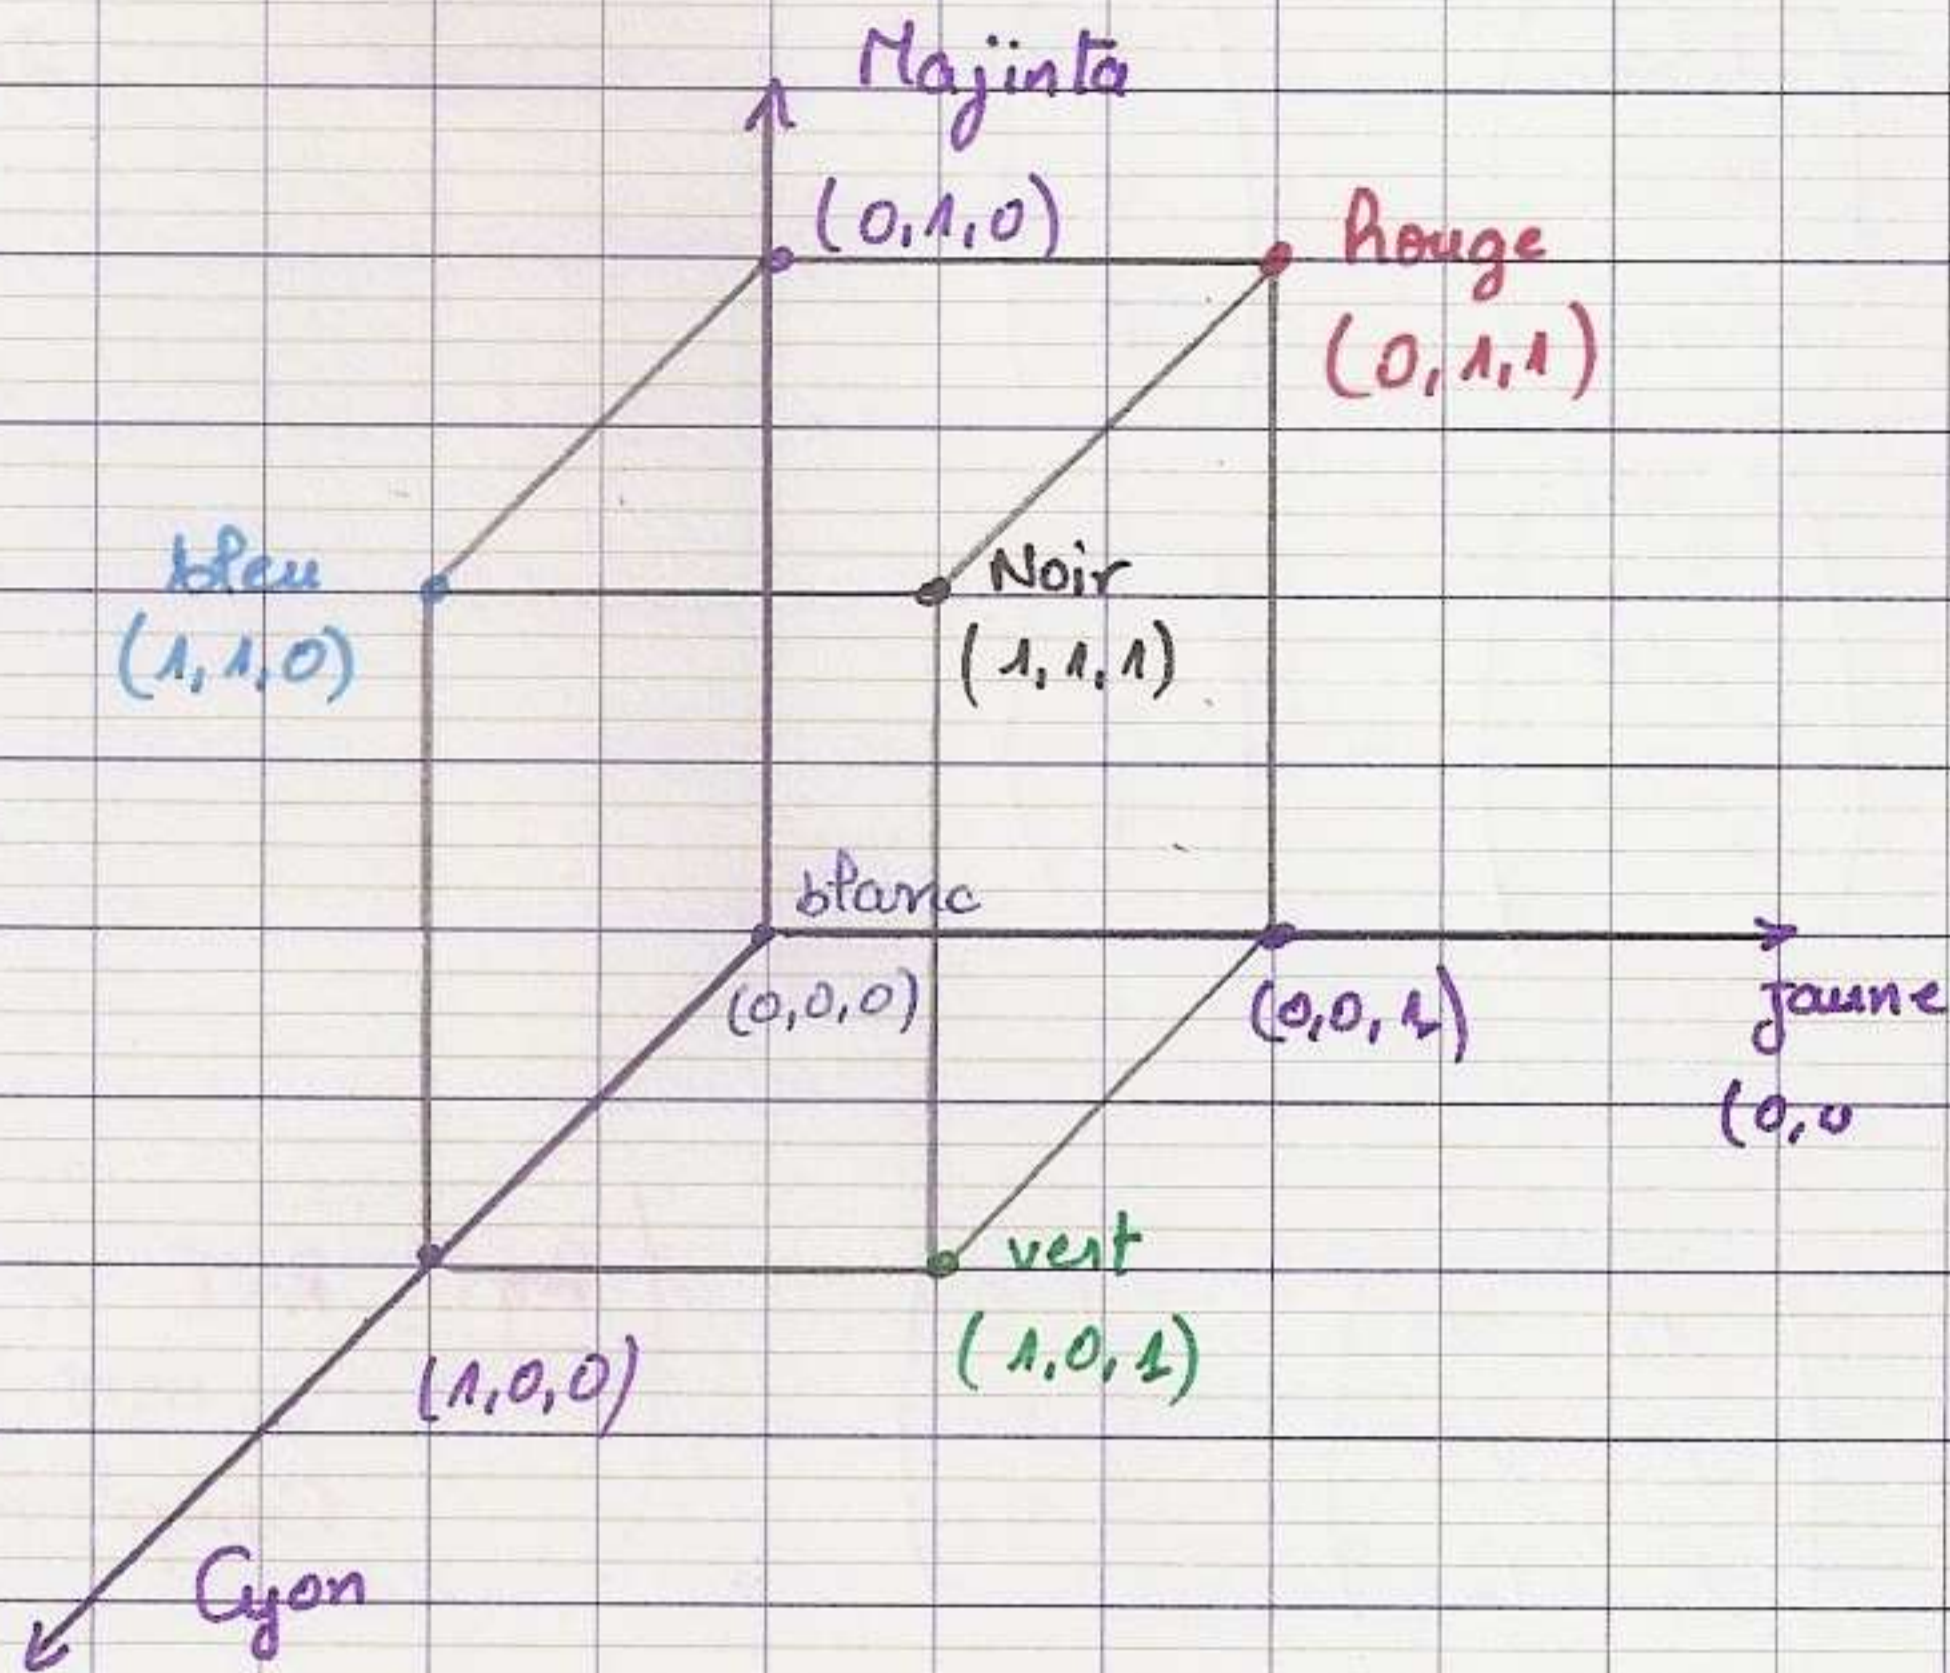 Majinta
(0,1,0)
Rouge
(0,1,1)
bleu
(1,1,0)
Noir
(1,1,1)
blanc
(0,0,0)
(0,0,1)
jaune
(0,0
(1,0,0)
vert
(1,0,1)
Cyon